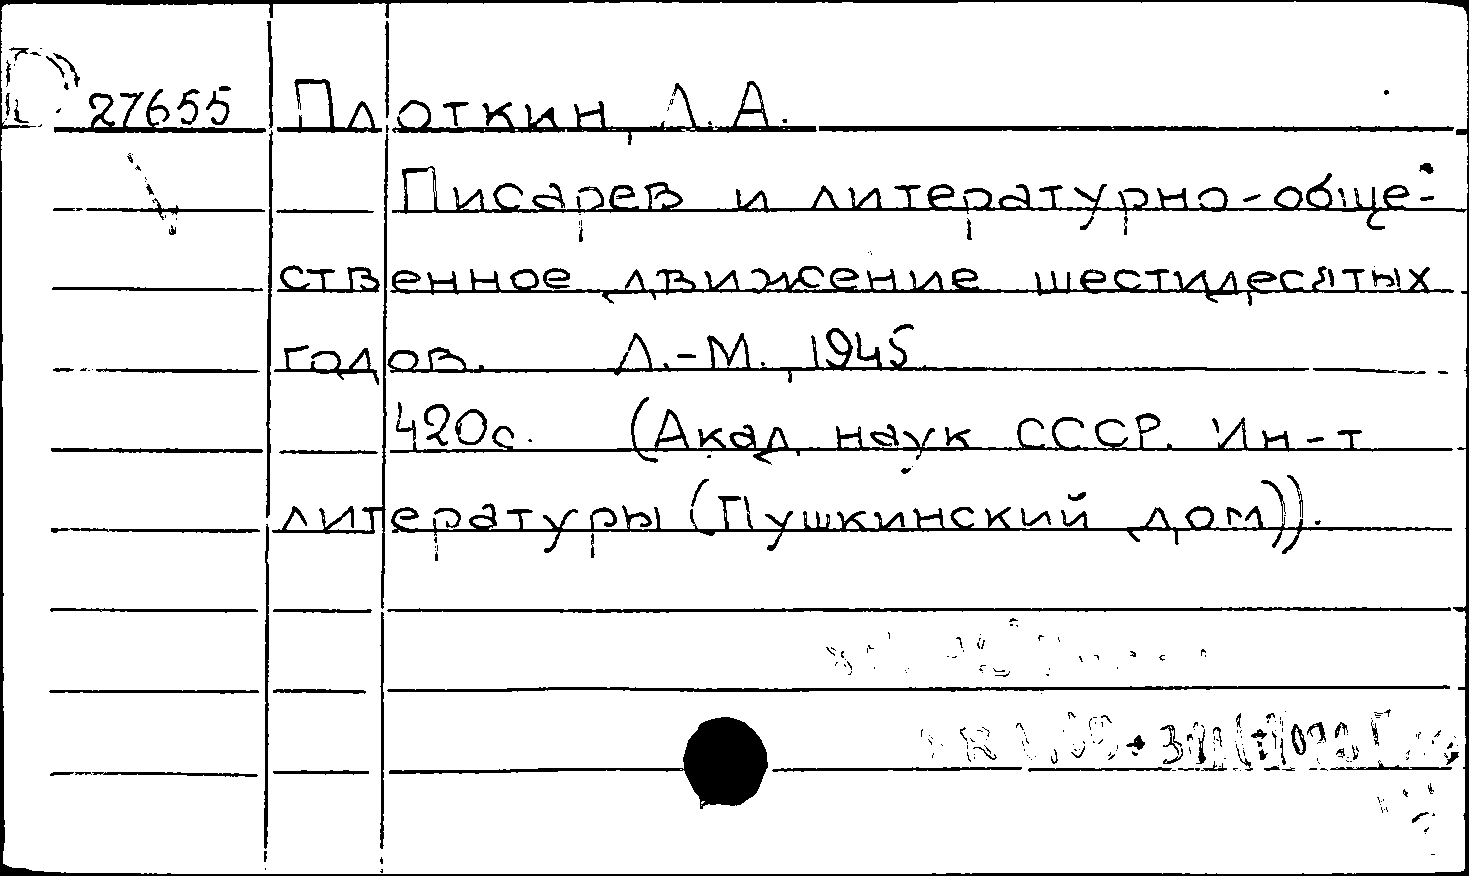 D 27655 Плоткин, Л. А.
Писарев и литературно-обще-
ственное движение шестидесятых
годов. Л.-М., 1945.
420с. (Акад. наук СССР. Ин-т
литературы (Пушкинский дом)).